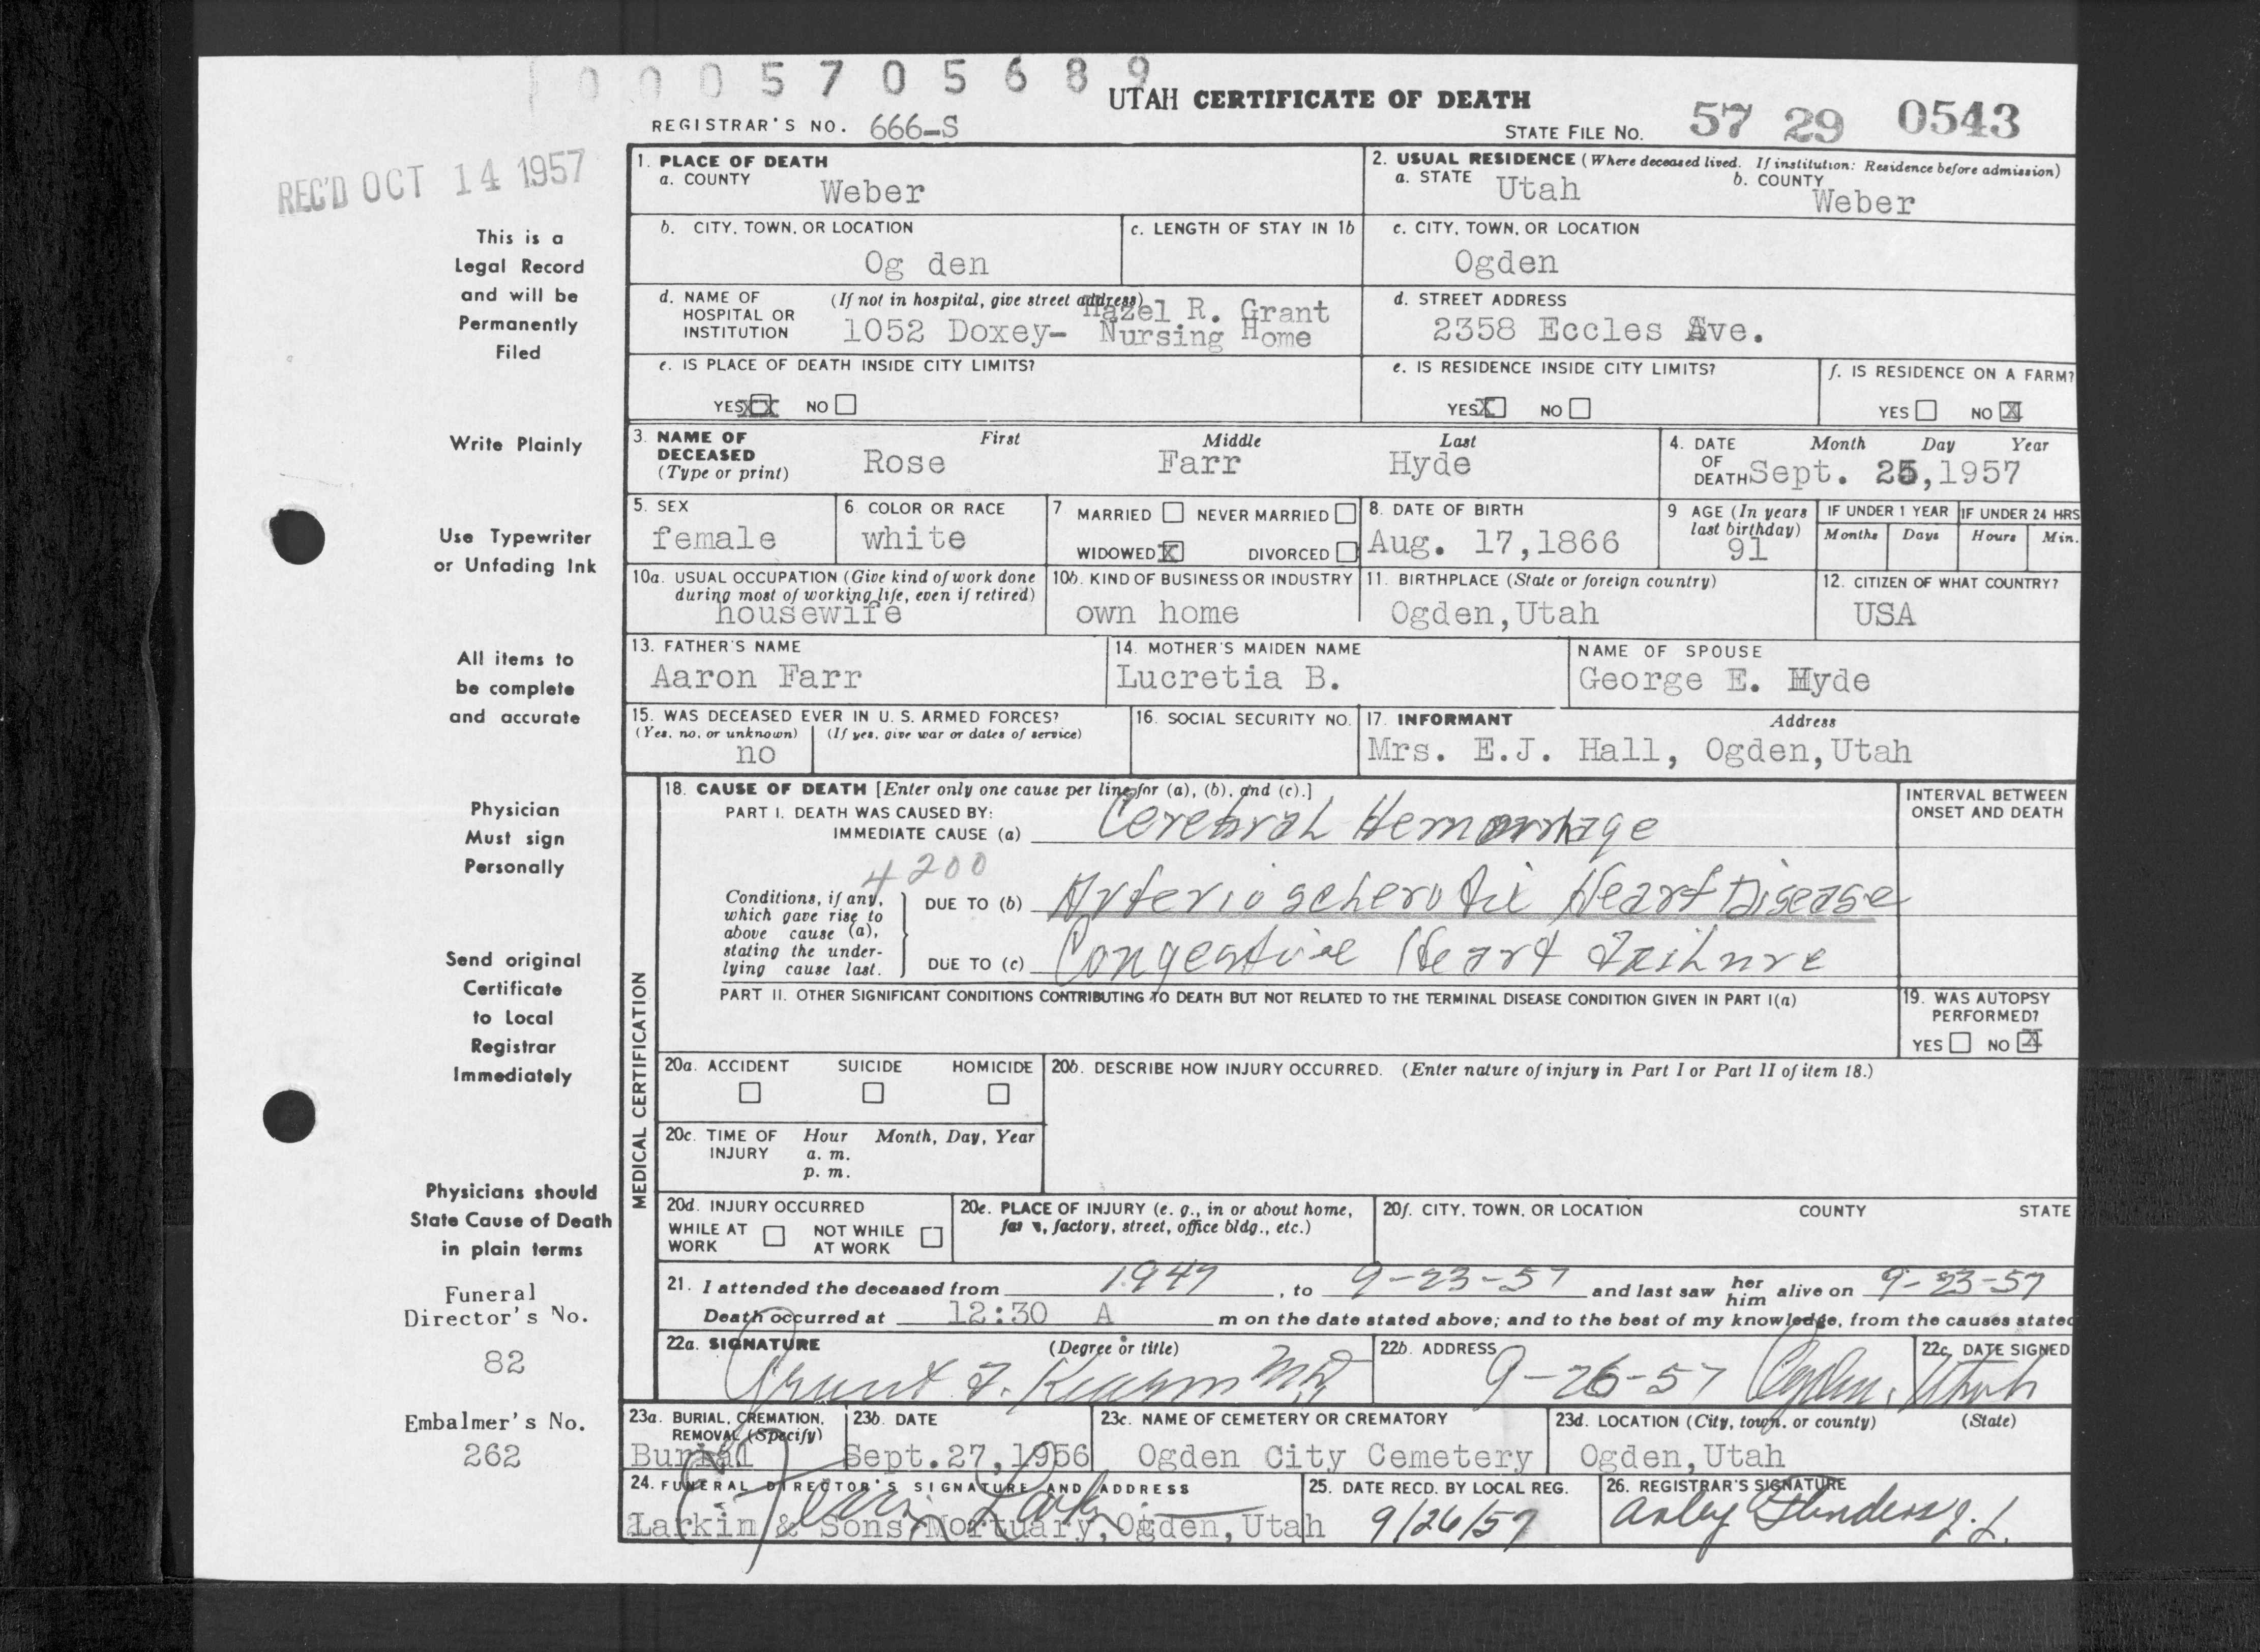 0 0 0 5 7 0 5 6 8 9
UTAH CERTIFICATE OF DEATH
REGISTRAR'S NO. 666-S
STATE FILE NO. 57 29 0543
REC'D OCT 14 1957
This is a
Legal Record
and will be
Permanently
Filed
Write Plainly
Use Typewriter
or Unfading Ink
All items to
be complete
and accurate
Physician
Must sign
Personally
Send original
Certificate
to Local
Registrar
Immediately
Physicians should
State Cause of Death
in plain terms
Funeral
Director's No.
82
Embalmer's No.
262
1. PLACE OF DEATH
a. COUNTY Weber
2. USUAL RESIDENCE (Where deceased lived. If institution: Residence before admission)
a. STATE Utah b. COUNTY Weber
b. CITY, TOWN, OR LOCATION Og den
c. LENGTH OF STAY IN 1b
c. CITY, TOWN, OR LOCATION Ogden
d. NAME OF HOSPITAL OR INSTITUTION (If not in hospital, give street address)
Hazel R. Grant
1052 Doxey- Nursing Home
d. STREET ADDRESS
2358 Eccles Ave.
e. IS PLACE OF DEATH INSIDE CITY LIMITS?
YES XX NO
e. IS RESIDENCE INSIDE CITY LIMITS?
YES X NO
f. IS RESIDENCE ON A FARM?
YES NO X
3. NAME OF DECEASED (Type or print)
First Middle Last
Rose Farr Hyde
4. DATE OF DEATH Month Day Year
Sept. 25,1957
5. SEX female
6. COLOR OR RACE white
7 MARRIED NEVER MARRIED
WIDOWED X DIVORCED
8. DATE OF BIRTH
Aug. 17,1866
9 AGE (In years last birthday) 91
IF UNDER 1 YEAR Months Days
IF UNDER 24 HRS Hours Min.
10a. USUAL OCCUPATION (Give kind of work done during most of working life, even if retired)
housewife
10b. KIND OF BUSINESS OR INDUSTRY
own home
11. BIRTHPLACE (State or foreign country)
Ogden,Utah
12. CITIZEN OF WHAT COUNTRY?
USA
13. FATHER'S NAME
Aaron Farr
14. MOTHER'S MAIDEN NAME
Lucretia B.
NAME OF SPOUSE
George E. Hyde
15. WAS DECEASED EVER IN U. S. ARMED FORCES?
(Yes, no, or unknown) (If yes, give war or dates of service)
no
16. SOCIAL SECURITY NO.
17. INFORMANT Address
Mrs. E.J. Hall, Ogden,Utah
MEDICAL CERTIFICATION
18. CAUSE OF DEATH [Enter only one cause per line for (a), (b), and (c).]
INTERVAL BETWEEN ONSET AND DEATH
PART I. DEATH WAS CAUSED BY:
IMMEDIATE CAUSE (a) Cerebral Hemorrhage
4200
Conditions, if any, which gave rise to above cause (a), stating the underlying cause last.
DUE TO (b) Arterioscherotic Heart Disease
DUE TO (c) Congestive Heart Failure
PART II. OTHER SIGNIFICANT CONDITIONS CONTRIBUTING TO DEATH BUT NOT RELATED TO THE TERMINAL DISEASE CONDITION GIVEN IN PART I(a)
19. WAS AUTOPSY PERFORMED?
YES NO X
20a. ACCIDENT SUICIDE HOMICIDE
20b. DESCRIBE HOW INJURY OCCURRED. (Enter nature of injury in Part I or Part II of item 18.)
20c. TIME OF INJURY Hour Month, Day, Year
a. m.
p. m.
20d. INJURY OCCURRED
WHILE AT WORK NOT WHILE AT WORK
20e. PLACE OF INJURY (e. g., in or about home, farm, factory, street, office bldg., etc.)
20f. CITY, TOWN, OR LOCATION COUNTY STATE
21. I attended the deceased from 1947, to 9-23-57 and last saw her him alive on 9-23-57
Death occurred at 12:30 A m on the date stated above; and to the best of my knowledge, from the causes stated
22a. SIGNATURE (Degree or title)
Grant F. MD
22b. ADDRESS
22c. DATE SIGNED
9-26-57 Ogden, Utah
23a. BURIAL, CREMATION, REMOVAL (Specify)
Burial
23b. DATE
Sept.27,1956
23c. NAME OF CEMETERY OR CREMATORY
Ogden City Cemetery
23d. LOCATION (City, town, or county) (State)
Ogden,Utah
24. FUNERAL DIRECTOR'S SIGNATURE AND ADDRESS
Larkin & Sons Mortuary,Ogden,Utah
25. DATE RECD. BY LOCAL REG.
9/26/57
26. REGISTRAR'S SIGNATURE